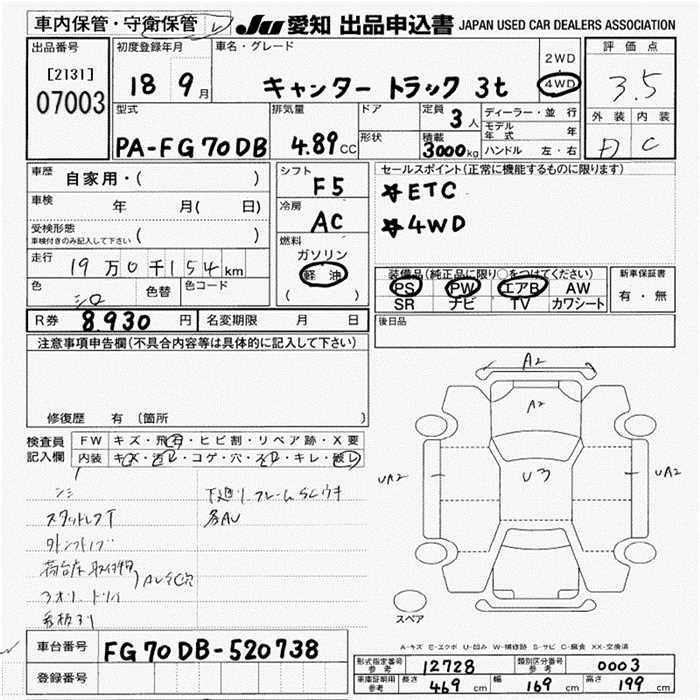 車内保管・守衛保管 レ
JU 愛知 出品申込書 JAPAN USED CAR DEALERS ASSOCIATION
出品番号
[2131]
07003
初度登録年月
18 9月
車名・グレード
キャンター トラック 3t
2WD
4WD
評価点
3.5
外装 内装
D C
型式
PA-FG70DB
排気量
4.89cc
ドア
形状
定員
3人
積載
3000kg
ディーラー・並行
モデル年式 年
ハンドル 左・右
車歴
自家用・( )
車検
年 月( 日)
受検形態
車検付きのみ記入して下さい ( )
走行
19万0千154km
色
シロ
色替
色コード
シフト
F5
冷房
AC
燃料
ガソリン
軽油
( )
セールスポイント(正常に機能するものに限ります)
☆ETC
☆4WD
装備品(純正品に限り○をつけてください)
PS PW エアB AW
SR ナビ TV カワシート
新車保証書
有・無
R券 8.930円
名変期限 月 日
後日品
注意事項申告欄(不具合内容等は具体的に記入して下さい)
修復歴 有(箇所 )
検査員
記入欄
FW キズ・飛石・ヒビ割・リペア跡・X要
内装 キズ・汚レ・コゲ・穴・スレ・キレ・破レ
スタッドレスT
下廻り フレームSCウキ
各AU
A2
A2
U3
UA2
UA2
スペア
A-キズ E-エクボ U-凹み W-補修跡 S-サビ C-腐食 XX-交換済
車台番号
FG70DB-520738
登録番号
形式指定番号
参考
12728
類別区分番号
参考
0003
車庫証明用
参考
長さ 469cm 幅 169cm 高さ 199cm